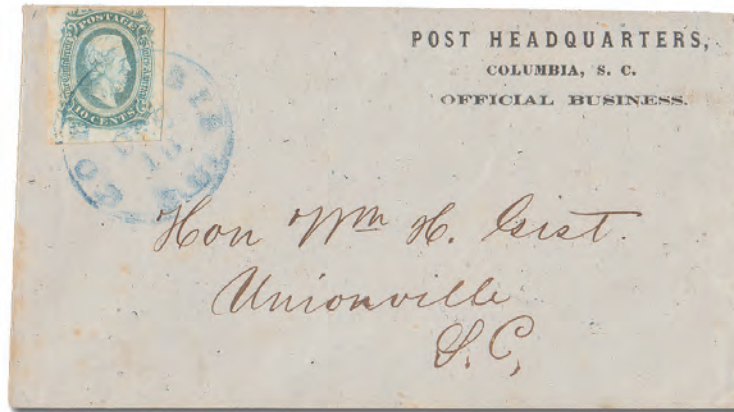 POSTAGE
10 CENTS
18
POST HEADQUARTERS,
COLUMBIA, S. C.
OFFICIAL BUSINESS.
Hon Wm H. Gist.
Unionville
S. C,